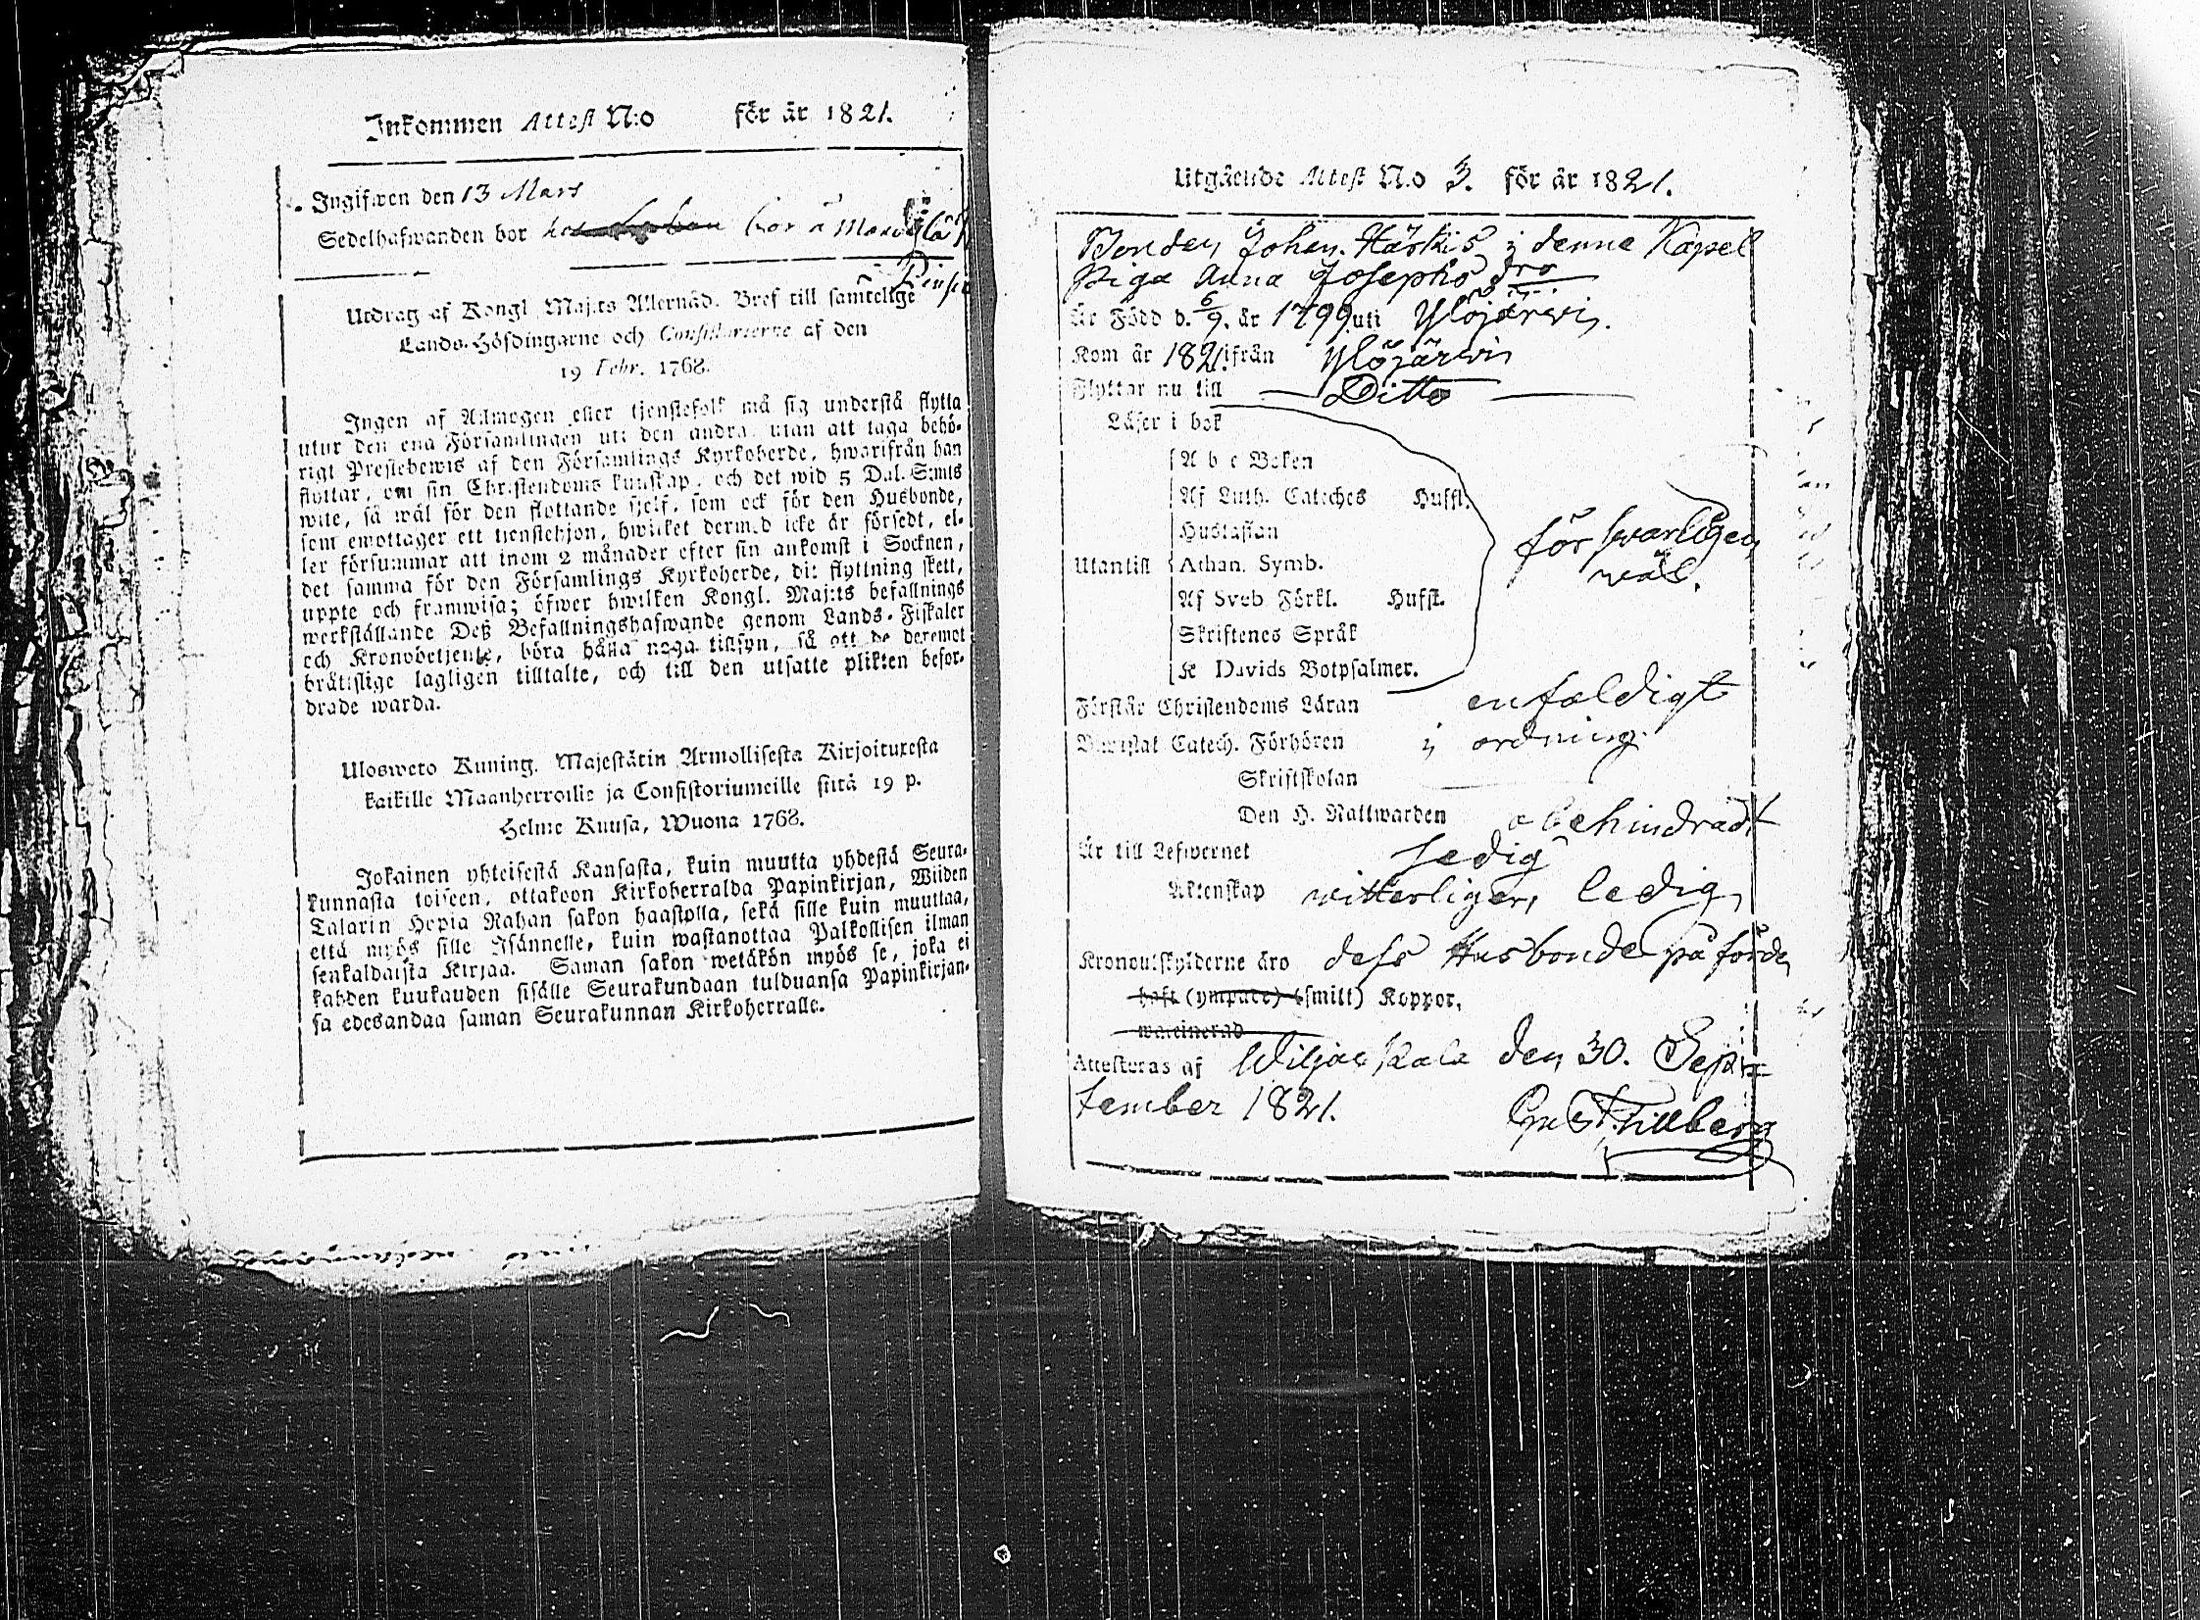 Inkommen Attest N:o för år 1821.
Ingifwen den 13 Mars
Sedelhafwanden bor bor å
Utdrag af Kongl. Maj:ts Allernåd. Bref till samtelige
Lands-Höfdingarne och Consistorierne af den
19 Febr. 1768.
Ingen af Allmogen eller tjenstefolk må sig understå flytta
utur den ena Församlingen uti den andra, utan att taga behö-
rigt Prestebewis af den Församlings Kyrkoherde, hwarifrån han
flyttar, om sin Christendoms kunskap, och det wid 5 Dal. S:mts
wite, så wäl för den flyttande sjelf, som ock för den Husbonde,
som emottager ett tjenstehjon, hwilket dermed icke är försedt, el-
ler försummar att inom 2 månader efter sin ankomst i Socknen,
det samma för den Församlings Kyrkoherde, dit flyttning skett,
uppte och framwisa; öfwer hwilken Kongl. Maj:ts befallnings
werkställande Deß Befallningshafwande genom Lands-Fiskaler
och Kronobetjente, böra hålla noga tillsyn, så att de deremot
brättslige lagligen tilltalte, och till den utsatte plikten befor-
drade warda.
Ulosweto Kuning. Majestätin Armollisesta Kirjoituxesta
kaikille Maanherroille ja Consistoriumeille siitä 19 p.
Helme Kuusa, Wuona 1768.
Jokainen yhteisestä Kansasta, kuin muutta yhdestä Seura-
kunnasta toiseen, ottakoon Kirkoherralda Papinkirjan, Wiiden
Talarin Hopia Rahan sakon haastolla, sekä sille kuin muuttaa,
että myös sille Isännelle, kuin wastanottaa Palkollisen ilman
senkaldaista Kirjaa. Saman sakon wetäkön myös se, joka ei
kahden kuukauden sisälle Seurakundaan tulduansa Papinkirjan-
sa edesandaa saman Seurakunnan Kirkoherralle.
Utgående Attest N:o 3. för år 1821.
Bonden Johan Häskis i denne Kapel
Piga Anna Josephsdro
Är Född d. 6/9. år 1799 uti Ylöjärwi.
Kom år 1821 ifrån Ylöjärwi
Flyttar nu till Ditto
Läser i bok
A b c Boken
Af Luth. Cateches Huffl.
Hustaflan
Utantill Athan. Symb.
Af Sveb Förkl. Huffl.
Skriftenes Språk
K Davids Botpsalmer.
försvarligen
wäl.
Förstår Christendoms Läran enfaldigt
Bewistat Catech. Förhören i ordning.
Skriftskolan
Den H. Nattwarden obehindradt
Är till Lefwernet sedig
Äktenskap witterligen ledig
Kronoutskylderne äro dess Husbonde påförde
haft (ympade) (smitt) Koppor,
waccinerad
Attesteras af Wiljakkala den 30. Sep-
tember 1821. Gust. Tillberg